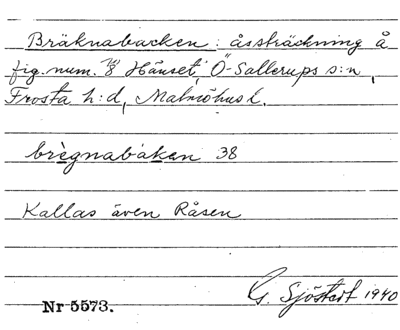 Bräknabacken: åssträckning å
fig. num. 1/8 Hänset, Ö-Sallerups s:n,
Frosta h:d, Malmöhus l.
brègnabàkan 38
Kallas även Råsen
G. Sjöstedt 1940
Nr 5573.